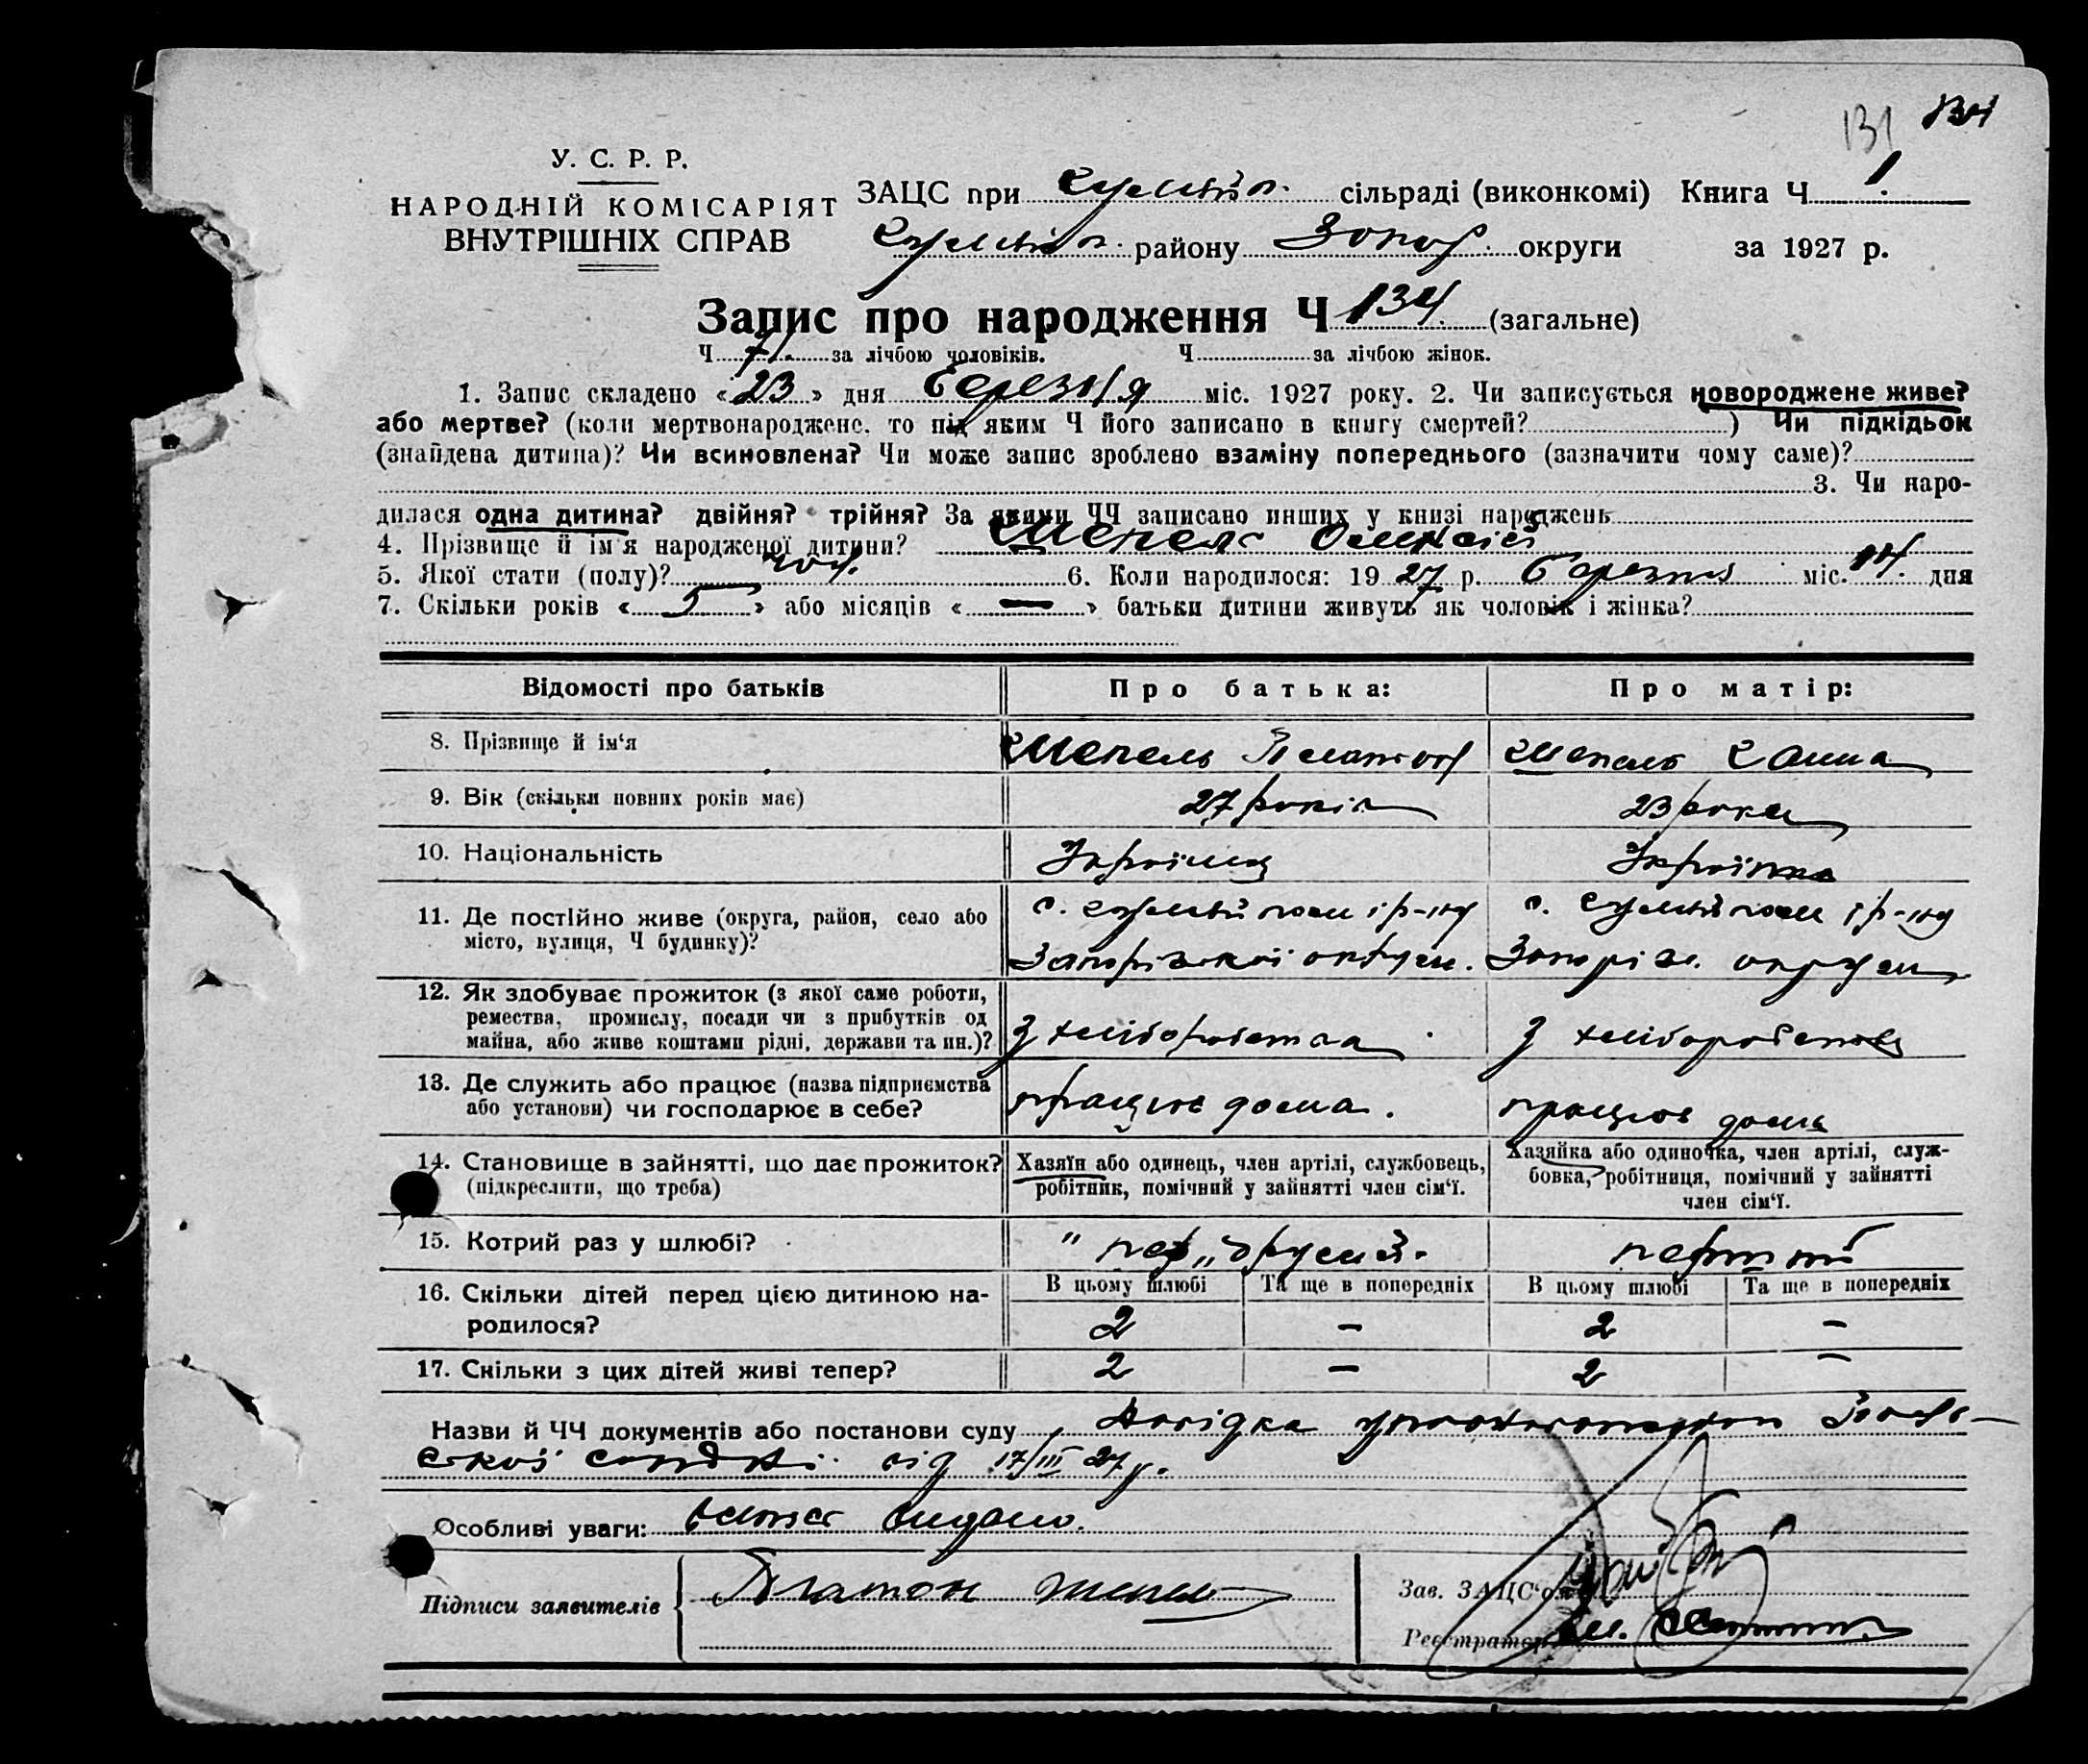 131 134
У. С. Р. Р.
НАРОДНІЙ КОМІСАРІЯТ
ВНУТРІШНІХ СПРАВ
ЗАЦС при Гуляйп. сільраді (виконкомі) Книга Ч 1.
Гуляйп. району Запор. округи за 1927 р.
Запис про народження Ч 134 (загальне)
Ч 71. за лічбою чоловіків. Ч за лічбою жінок.
1. Запис складено « 23 » дня березня міс. 1927 року. 2. Чи записується новороджене живе?
або мертве? (коли мертвонароджене, то під яким Ч його записано в книгу смертей? ) Чи підкідьок
(знайдена дитина)? Чи всиновлена? Чи може запис зроблено взаміну попереднього (зазначити чому саме)?
3. Чи наро-
дилася одна дитина? двійня? трійня? За якими ЧЧ записано инших у книзі народжень
4. Прізвище й ім'я народженої дитини? Шепель Олексій
5. Якої стати (полу)? чол. 6. Коли народилося: 19 27 р. березня міс. 14. дня
7. Скільки років « 5 » або місяців « — » батьки дитини живуть як чоловік і жінка?
Відомості про батьків Про батька: Про матір:
8. Прізвище й ім'я Шепель Платон Шепель Ганна
9. Вік (скільки повних років має) 27 років 23 роки
10. Національність Українец Українка
11. Де постійно живе (округа, район, село або с. Гуляйполе і р-ну с. Гуляйполе і р-ну
місто, вулиця, Ч будинку)? Запорізької округи. Запоріз. округи
12. Як здобуває прожиток (з якої саме роботи,
ремества, промислу, посади чи з прибутків од
майна, або живе коштами рідні, держави та ин.)? З хліборобства З хліборобства
13. Де служить або працює (назва підприємства
або установи) чи господарює в себе? працює дома. працює дома
14. Становище в зайнятті, що дає прожиток? Хазяїн або одинець, член артілі, службовець, Хазяйка або одиночка, член артілі, служ-
(підкреслити, що треба) робітник, помічний у зайнятті член сім'ї. бовка, робітниця, помічний у зайнятті
член сім'ї.
15. Котрий раз у шлюбі? " пер„ другий. перший
16. Скільки дітей перед цією дитиною на- В цьому шлюбі Та ще в попередніх В цьому шлюбі Та ще в попередніх
родилося? 2 — 2 —
17. Скільки з цих дітей живі тепер? 2 — 2 —
Назви й ЧЧ документів або постанови суду Довідка
від 17/III 27 р.
Особливі уваги: видано.
Підписи заявителів Платон Шепель
Зав. ЗАЦС'ом
Реєстратор